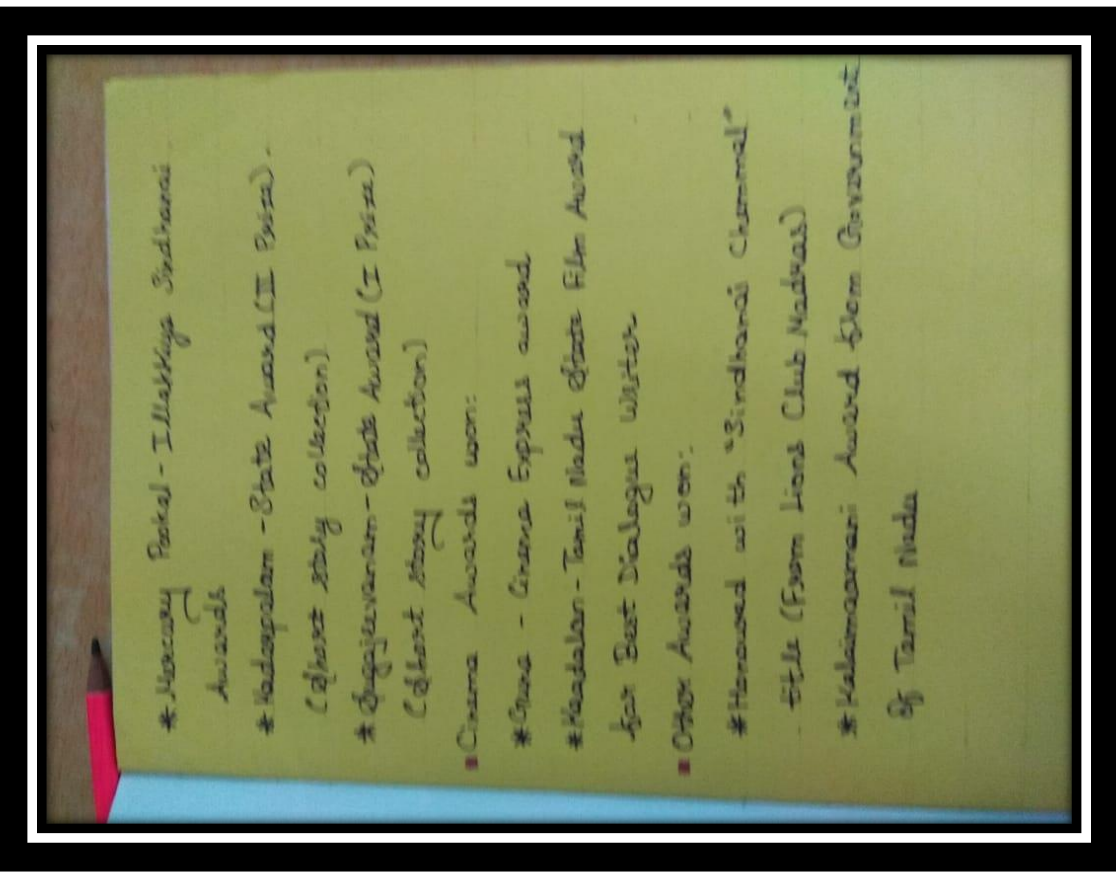 * Mercury Pookal - Illakkiya Sindhanai
Awards
* Kadarpalam - State Award (II Prize).
(Short story collection)
* Sugajeevanam - State Award (I Prize)
(Short story collection)
Cinema Awards won:
* Guna - Cinema Express award
* Kaadalan - Tamil Nadu State Film Award
for Best Dialogue Writer
Other Awards won:
* Honoured with "Sindhanai Chemmal"
title (From Lions Club Madras)
* Kalaimaamani Award from Government
of Tamil Nadu